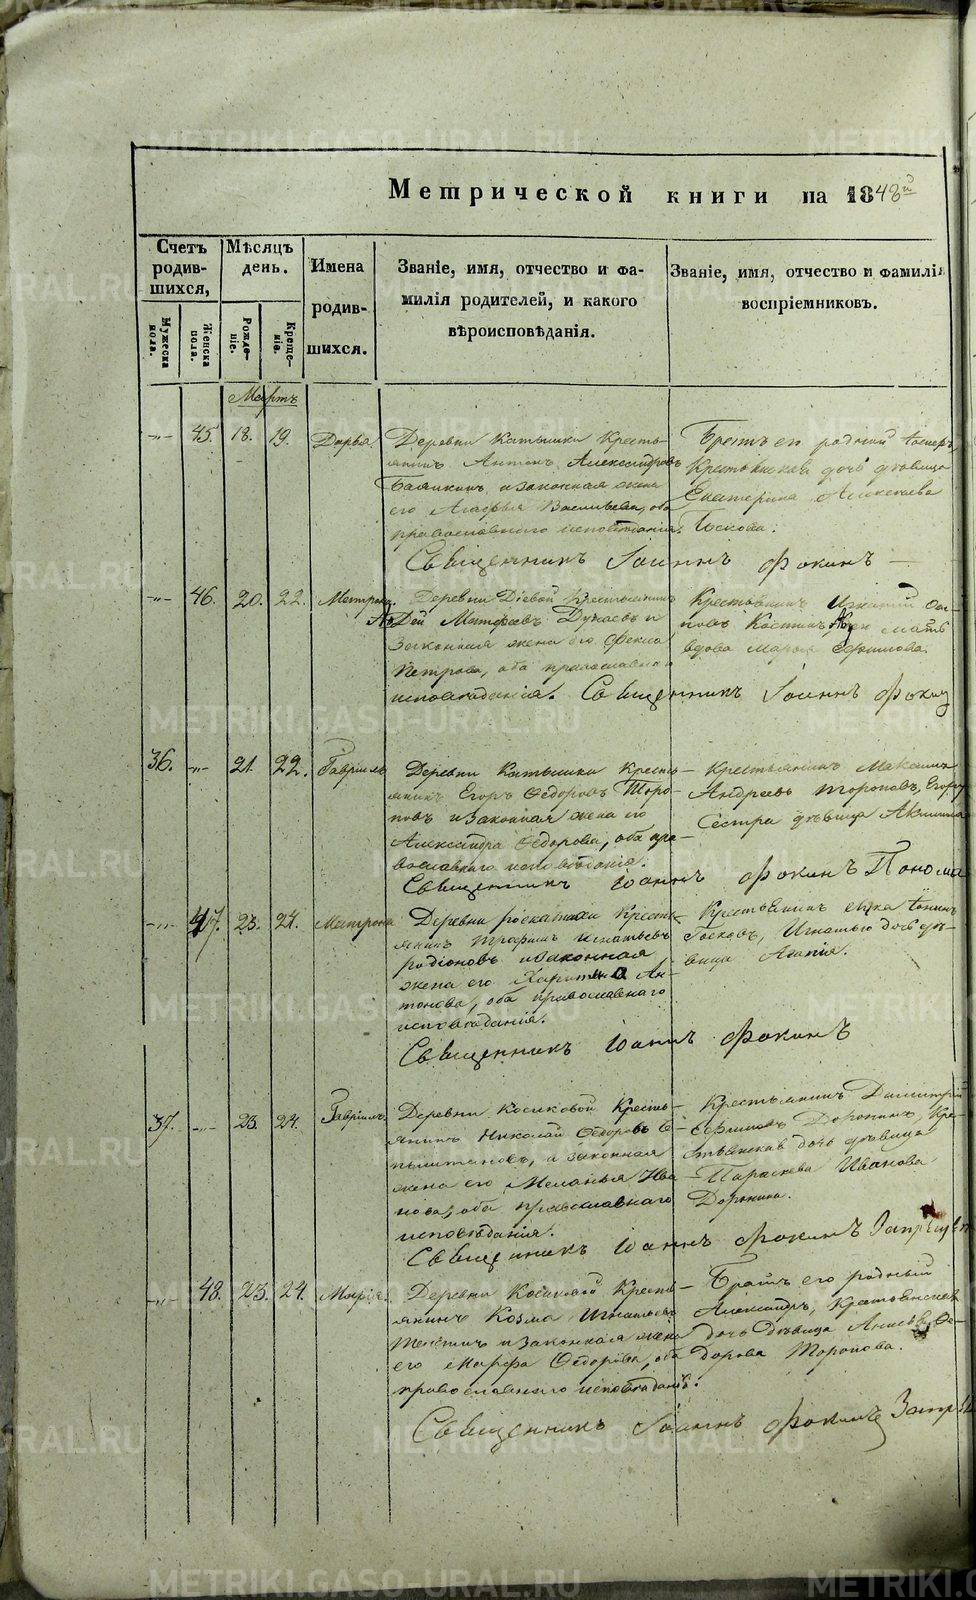 Метрической книги на 1848й
Счетъ родив-шихся,
Мѣсяцъ день.
Имена родив-шихся.
Званіе, имя, отчество и фа-
милія родителей, и какого
вѣроисповѣданія.
Званіе, имя, отчество и фамилія
воспріемниковъ.
Мужеска пола.
Женска пола.
Рожде-ніе.
Креще-ніе.
Мартъ
45. 18. 19. Дарья
Деревни Катышки Кресть-
янинъ Антонъ Александровъ
и законная жена
его Васильева, оба
православнаго исповѣданія.
Братъ ея родный
Крестьянская дочь дѣвица
Екатерина Алексѣева
Госкова.
Священникъ Іоаннъ Фокинъ
46. 20. 22. Матрона.
Деревни Діевой Крестьянинъ
Матфеевъ и
Законная жена его Фекла
Петрова, оба православнаго
исповѣданія.
Крестьянинъ Игнатій
мать
вдова Марья Ефимова.
Священникъ Іоаннъ Фокин
36. 21. 22. Гавріилъ
Деревни Катышки Кресть-
янинъ Егоръ Ѳедоровъ Торо-
повъ и законная жена его
Александра Ѳедорова, оба пра-
вославнаго исповѣданія.
Крестьянинъ Максимъ
Андреевъ Тороповъ, Егора
Сестра дѣвица Акилина
Священникъ Іоаннъ Фокинъ Понома
47. 23. 24. Матрона
Деревни Роскатихи Кресть-
янинъ Трофимъ Игнатьевъ
Родіоновъ и законная
жена его Харитина Ан-
тонова, оба православнаго
исповѣданія.
Крестьянинъ
Госковъ, Игнатью дочь дѣ-
вица Агапія.
Священникъ Іоаннъ Фокинъ
37. 23. 24. Гавріилъ.
Деревни Косиковой Кресть-
янинъ Николай Ѳедоровъ
и законная
жена его Меланья Ива-
нова, оба православнаго
исповѣданія.
Крестьянинъ Димитрій
Ефимовъ Доронинъ, Кре-
стьянская дочь дѣвица
Параскева Иванова
Доронина.
Священникъ Іоаннъ Фокинъ
48. 23. 24. Марія.
Деревни Косиковой Кресть-
янинъ Козма Игнатьевъ
и законная жена
его Марфа Ѳедорова, оба
православнаго исповѣданія.
Братъ его родный
Александръ, Крестьянская
дочь дѣвица Ѳе-
дорова Торопова.
Священникъ Іоаннъ Фокинъ
METRIKI.GASO-URAL.RU